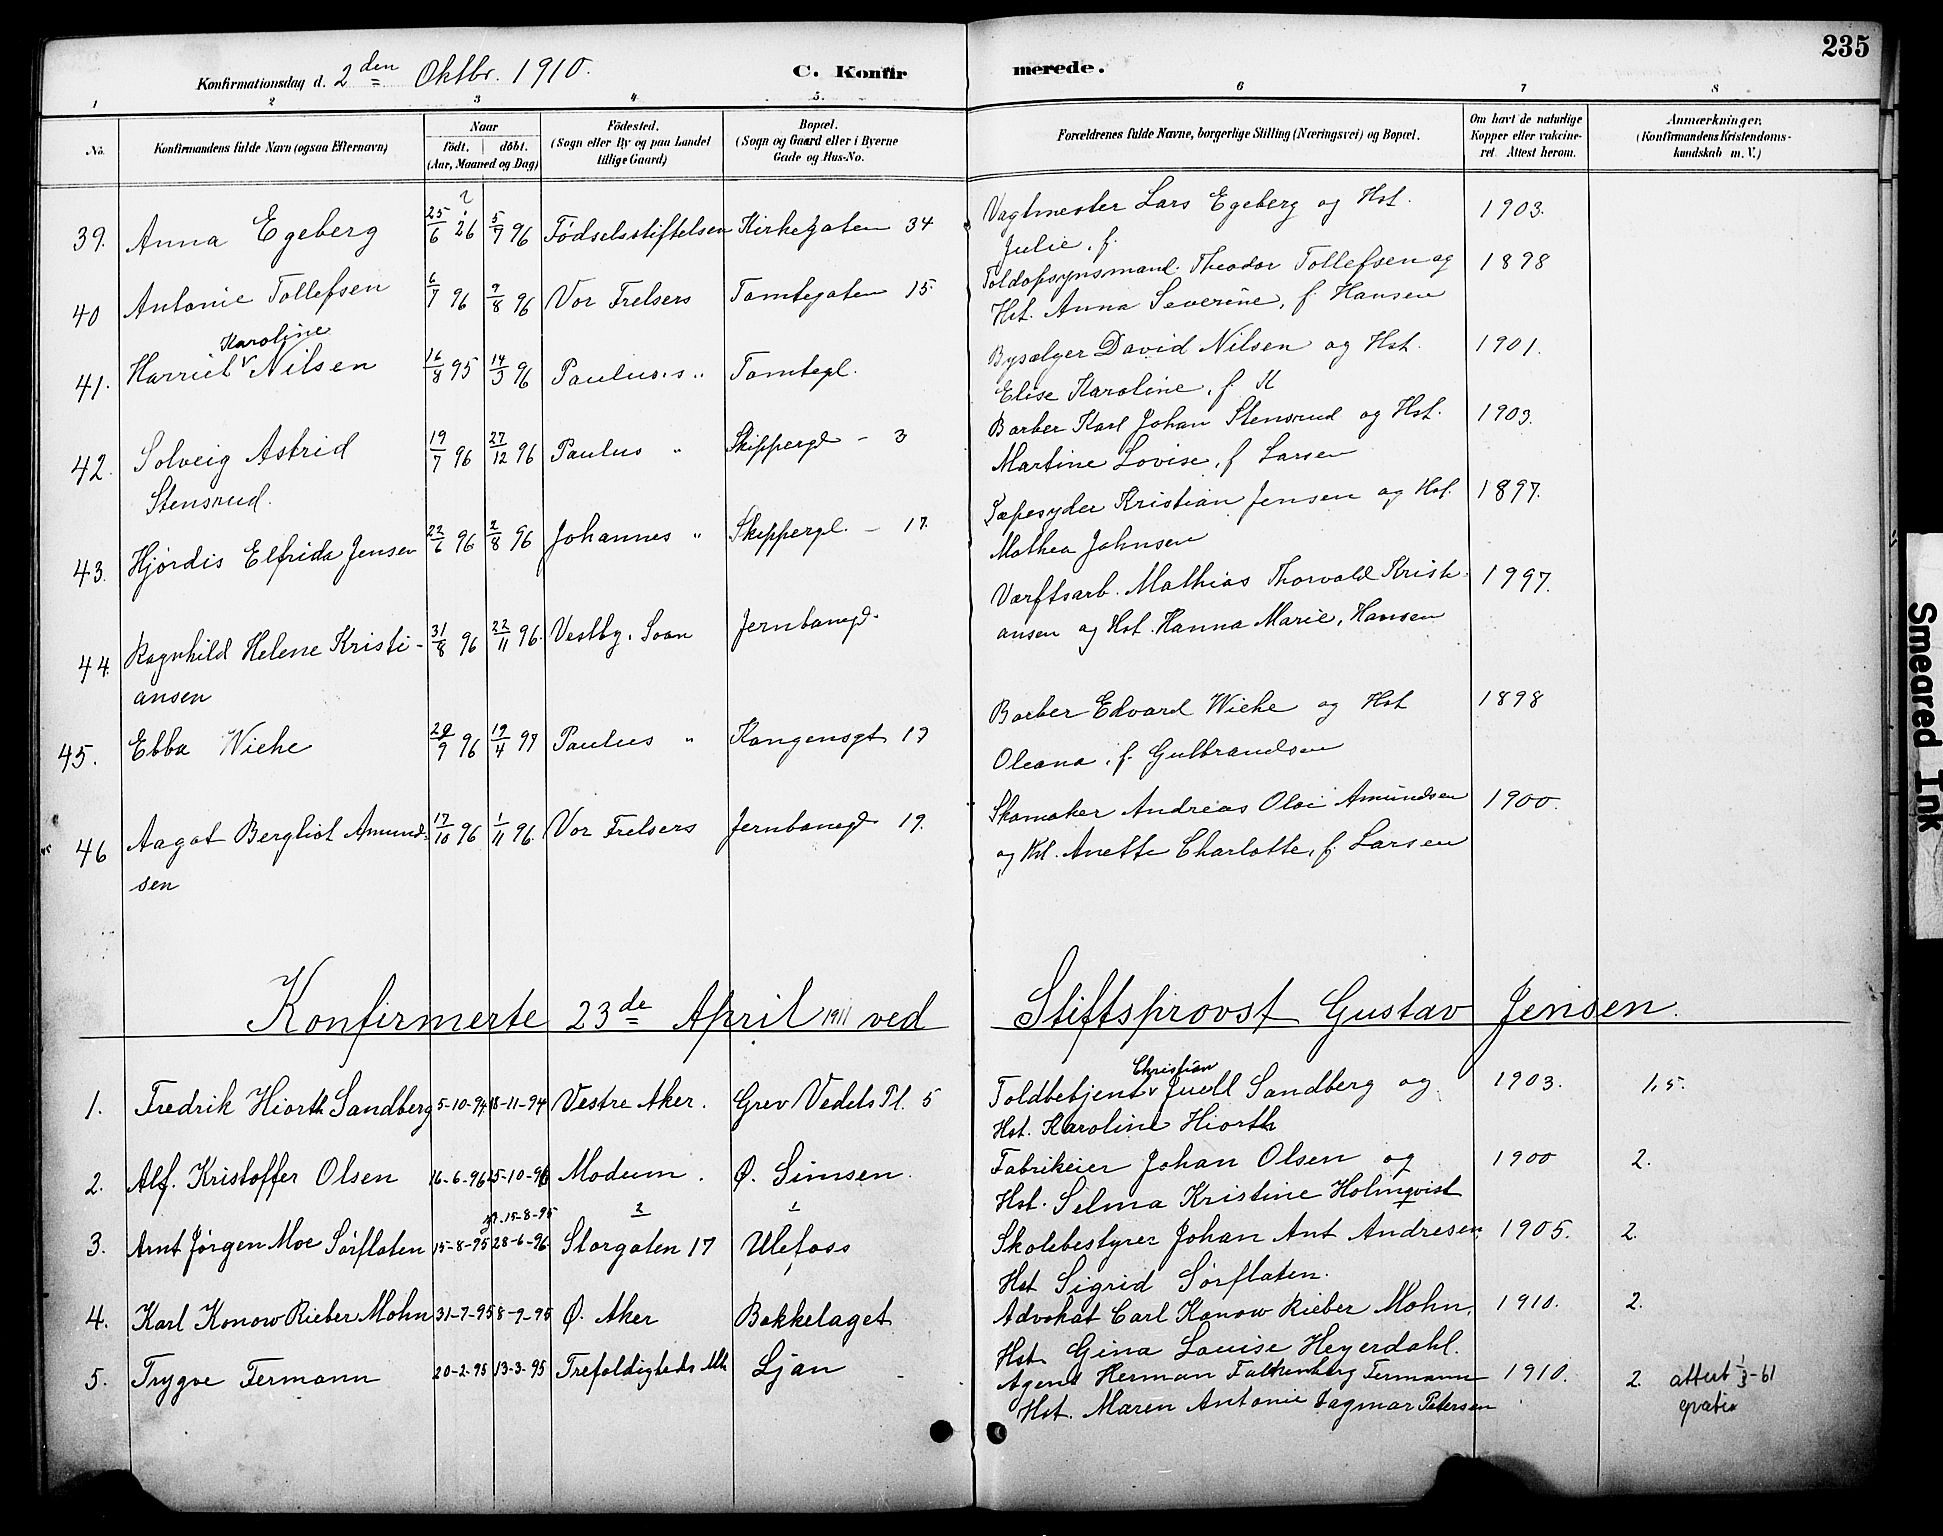 235
Konfirmationsdag d. 2den Oktbr. 1910.
C. Konfirmerede.
1 2 3 4 5. 6 7 8
No.
Konfirmandens fulde Navn (ogsaa Efternavn)
Naar
født. døbt.
(Aar, Maaned og Dag)
Födested.
(Sogn eller By og paa Landet
tillige Gaard)
Bopæl.
(Sogn og Gaard eller i Byerne
Gade og Hus-No.
Forældrenes fulde Navne, borgerlige Stilling (Næringsvei) og Bopæl.
Om havt de naturlige
Kopper eller vakcine-
ret. Attest herom.
Anmærkninger.
(Konfirmandens Kristendoms-
kundskab m. V.)
39. Anna Egeberg 25/6 26 ? 5/7 96 Fødselsstiftelsen Kirkegaten 34 Vagtmester Lars Egeberg og Hst. 1903.
Julie, f.
40 Antonie Tollefsen 6/7 96 9/8 96 Vor Frelsers Tomtegaten 15. Toldopsynsmand. Theodor Tollefsen og 1898
Hst. Anna Severine, f. Hansen
Karoline
41. Harriet v Nilsen 16/8 95 14/3 96 Paulus.s " Tomtegt. Bysælger David Nilsen og Hst. 1901.
Elise Karoline, f. K
42. Solveig Astrid 19/7 96 27/12 96 Paulus " Skippergt - 3 Barber Karl Johan Stensrud og Hst. 1903.
Stensrud. Martine Lovise, f Larsen
43. Hjørdis Elfrida Jensen 22/6 96 2/8 96 Johannes " Skippergt. - 17. Sæpesyder Kristian Jensen og Hst. 1897.
Mathea Johnsen
44. Ragnhild Helene Kristi- 31/8 96 22/11 96. Vestby. Soon Jernbanegt. Værftsarb. Mathias Thorvald Kristi- 1997.
ansen ansen og Hst. Hanna Marie, Hansen
45. Ebba Wiehe 9 96 19/4 97 Paulus " Kongensgt 13 Barber Edvard Wiehe og Hst 1898
Oleana, f. Gulbrandsen
46 Aagot Bergliot Amund- 17/10 96 1/11 96. Vor Frelsers Jernbanegt 19. Skomaker Andreas Olai Amundsen 1900.
sen og Hst. Anette Charlotte, f. Larsen
Konfirmerte 23de April 1911 ved Stiftsprovst Gustav Jensen.
Christian
1. Fredrik Hiorth Sandberg 5-10-94 18-11-94 Vestre Aker. Grev Vedels Pl. 5 Toldbetjent v Juell Sandberg og 1903. 1,5.
Hst. Karoline Hiorth
2. Alf. Kristoffer Olsen 16-6-96 25-10-96 Modum. Ø. Simsen. Fabrikeier Johan Olsen og 1900 2.
Hst. Selma Kristine Holmqvist
15-8-95
3. Arnt Jørgen Moe Sørflaten 15-8-95 28-6-96. Storgaten 17 Ulefoss Skolebestyrer Johan Ant Andresen. 1905. 2.
Hst Sigrid Sørflaten.
4. Karl Konow Rieber Mohn 31-7-95 8-9-95 Ø. Aker Bækkelaget Advokat Carl Konow Rieber Mohn, 1910. 2.
Hst. Gina Louise Heyerdahl.
5. Trygve Fermann 20-2-95 13-3-95 Trefoldigheds Mh Ljan Agent Herman Falkenberg Fermann 1910. 2. attest 1/3-61
Hst. Maren Antonie Dagmar Petersen gratis
Smeared Ink